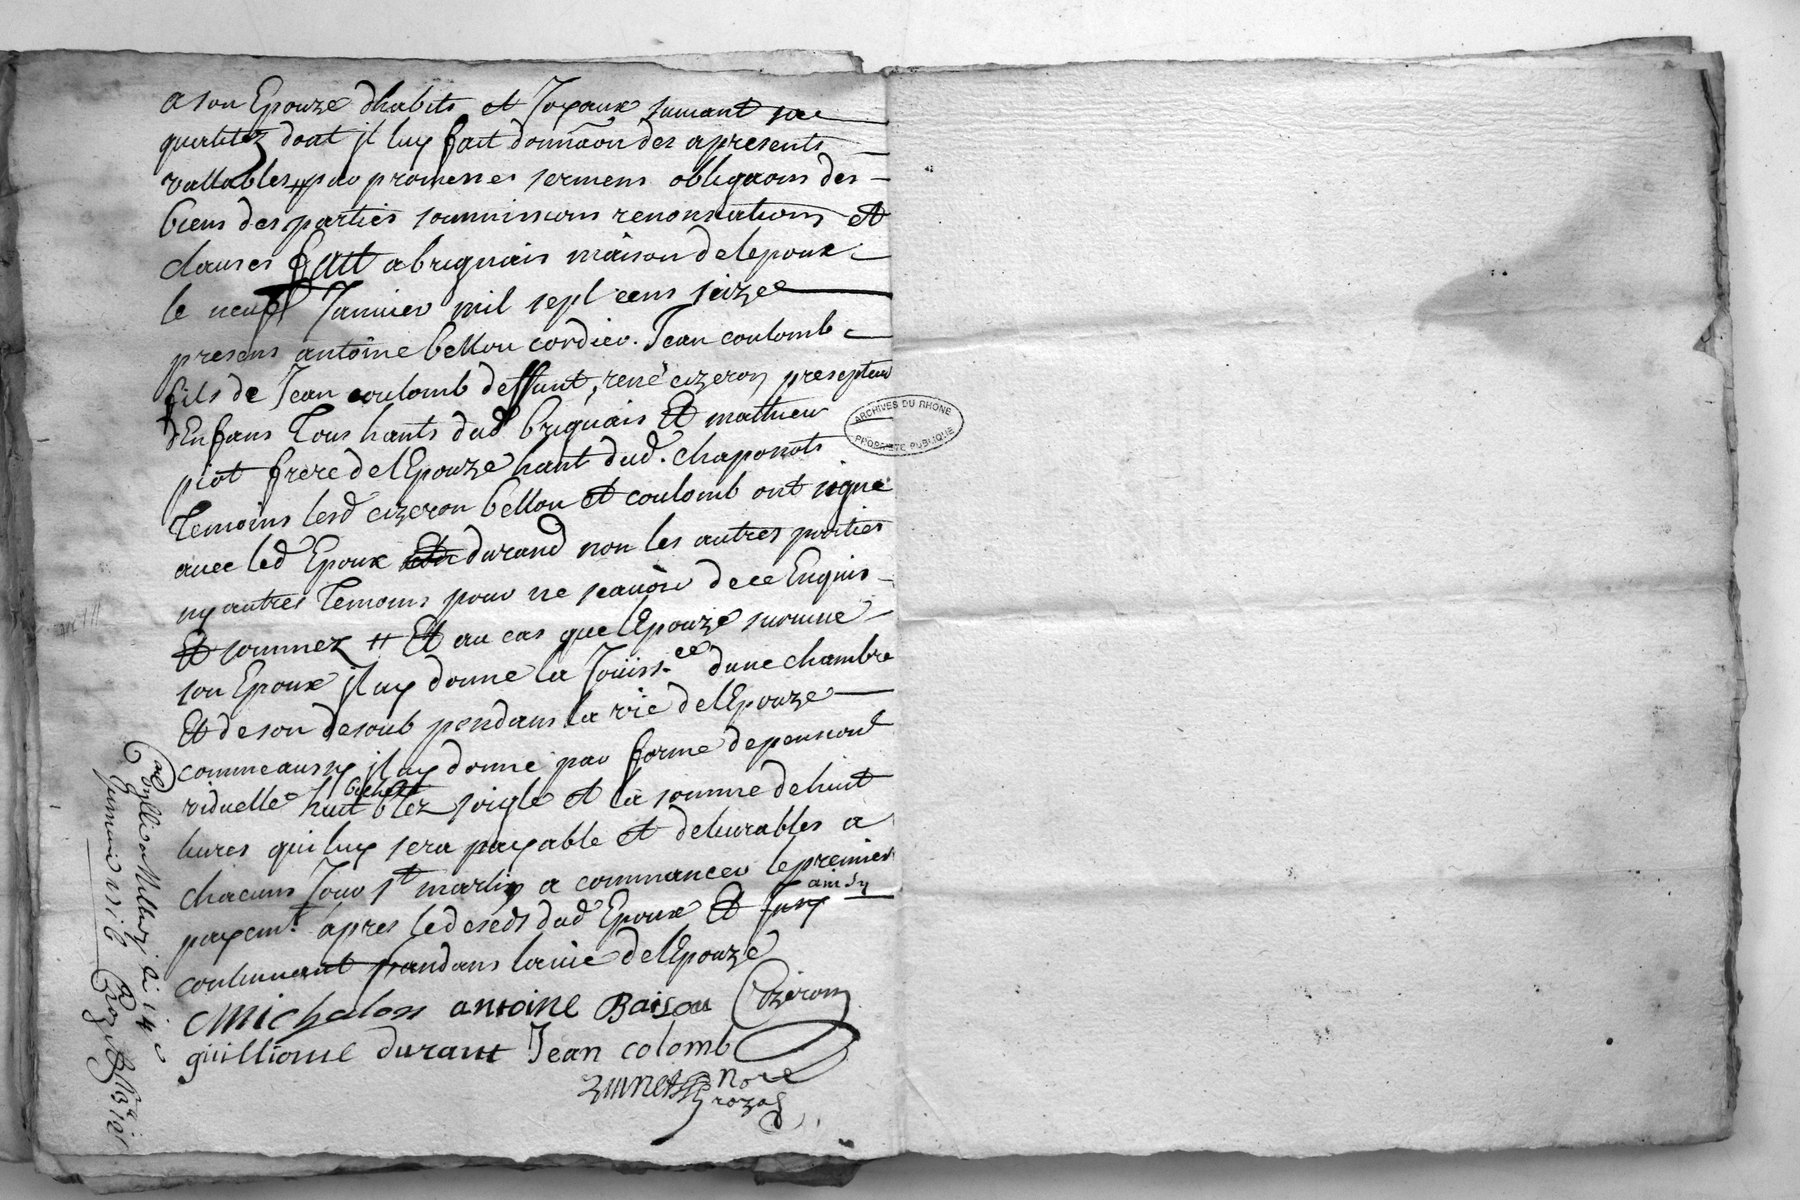 a son Epouze d'habits et Joyaux suivant sae
qualitez dont jl luy fait donnaon dez apresents
vallables # par promesses sermens obligaons des
biens des parties soummissions renonsations et
clauses fait a brignais maison de lepoux
le neufe Janvier mil sept cens seize
presens antoine bellou cordier. Jean coulomb
fils de Jean coulomb deffunt, rené cizeron presepteur
d'Enfans tous hants dud brignais Et mathieu
piot frere de l'Epouze hant dud. chaponots
temoins lesd cizeron bellou et coulomb ont signe
avec led Epoux durand non les autres parties
ny autres temoins pour ne scavoir de ce Enquis
Et sommez # Et au cas que l'Epouze survive
son Epoux jl luy donne la Joüiss.ce dune chambre
Et de son desoub pendans la vie de l'Epouze
comme aussy jl luy donne par forme de pension
viduelle huit bichet blez soigle et la somme de huit
livres qui luy sera payable et delivrables a
chacuns Jour st martin a commancer le premier
payemt. apres le deseds dud Epoux Et ainsy
continuant pandans la vie de l'Epouze
Michalon antoine Baisou Cizeron
guilliome durant Jean colomb
Nore
rozas
ARCHIVES DU RHÔNE
PROPRIÉTÉ PUBLIQUE